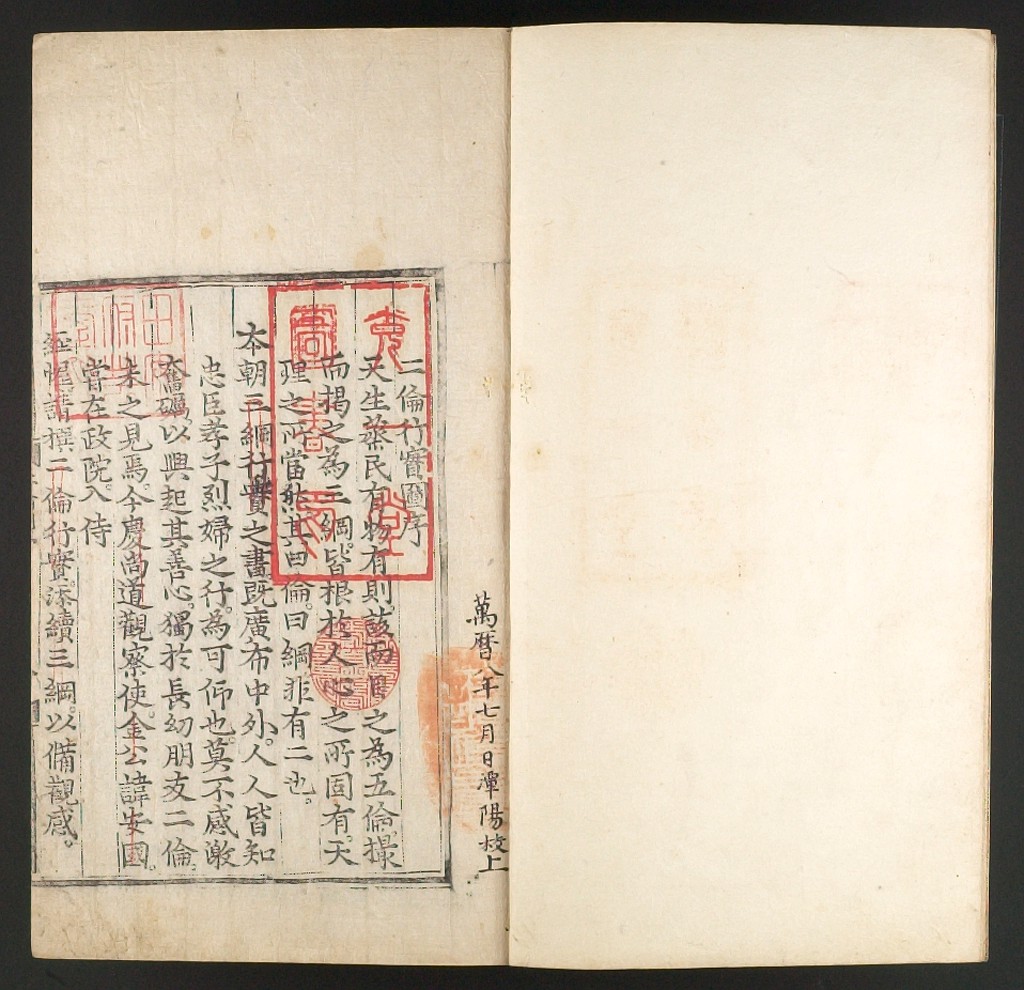 萬曆八年七月日潭陽校上
二倫行實圖序
天生蒸民有物有則該而目之為五倫撮
而揭之為三綱皆根於人心之所固有天
理之所當然其曰倫曰綱非有二也
本朝三綱行實之畫既廣布中外人人皆知
忠臣孝子烈婦之行為可仰也莫不感激
奮礪以興起其善心獨於長幼朋友二倫
未之見焉今慶尚道觀察使金公諱安國
嘗在政院入侍
經幄請撰二倫行實添續三綱以備觀感